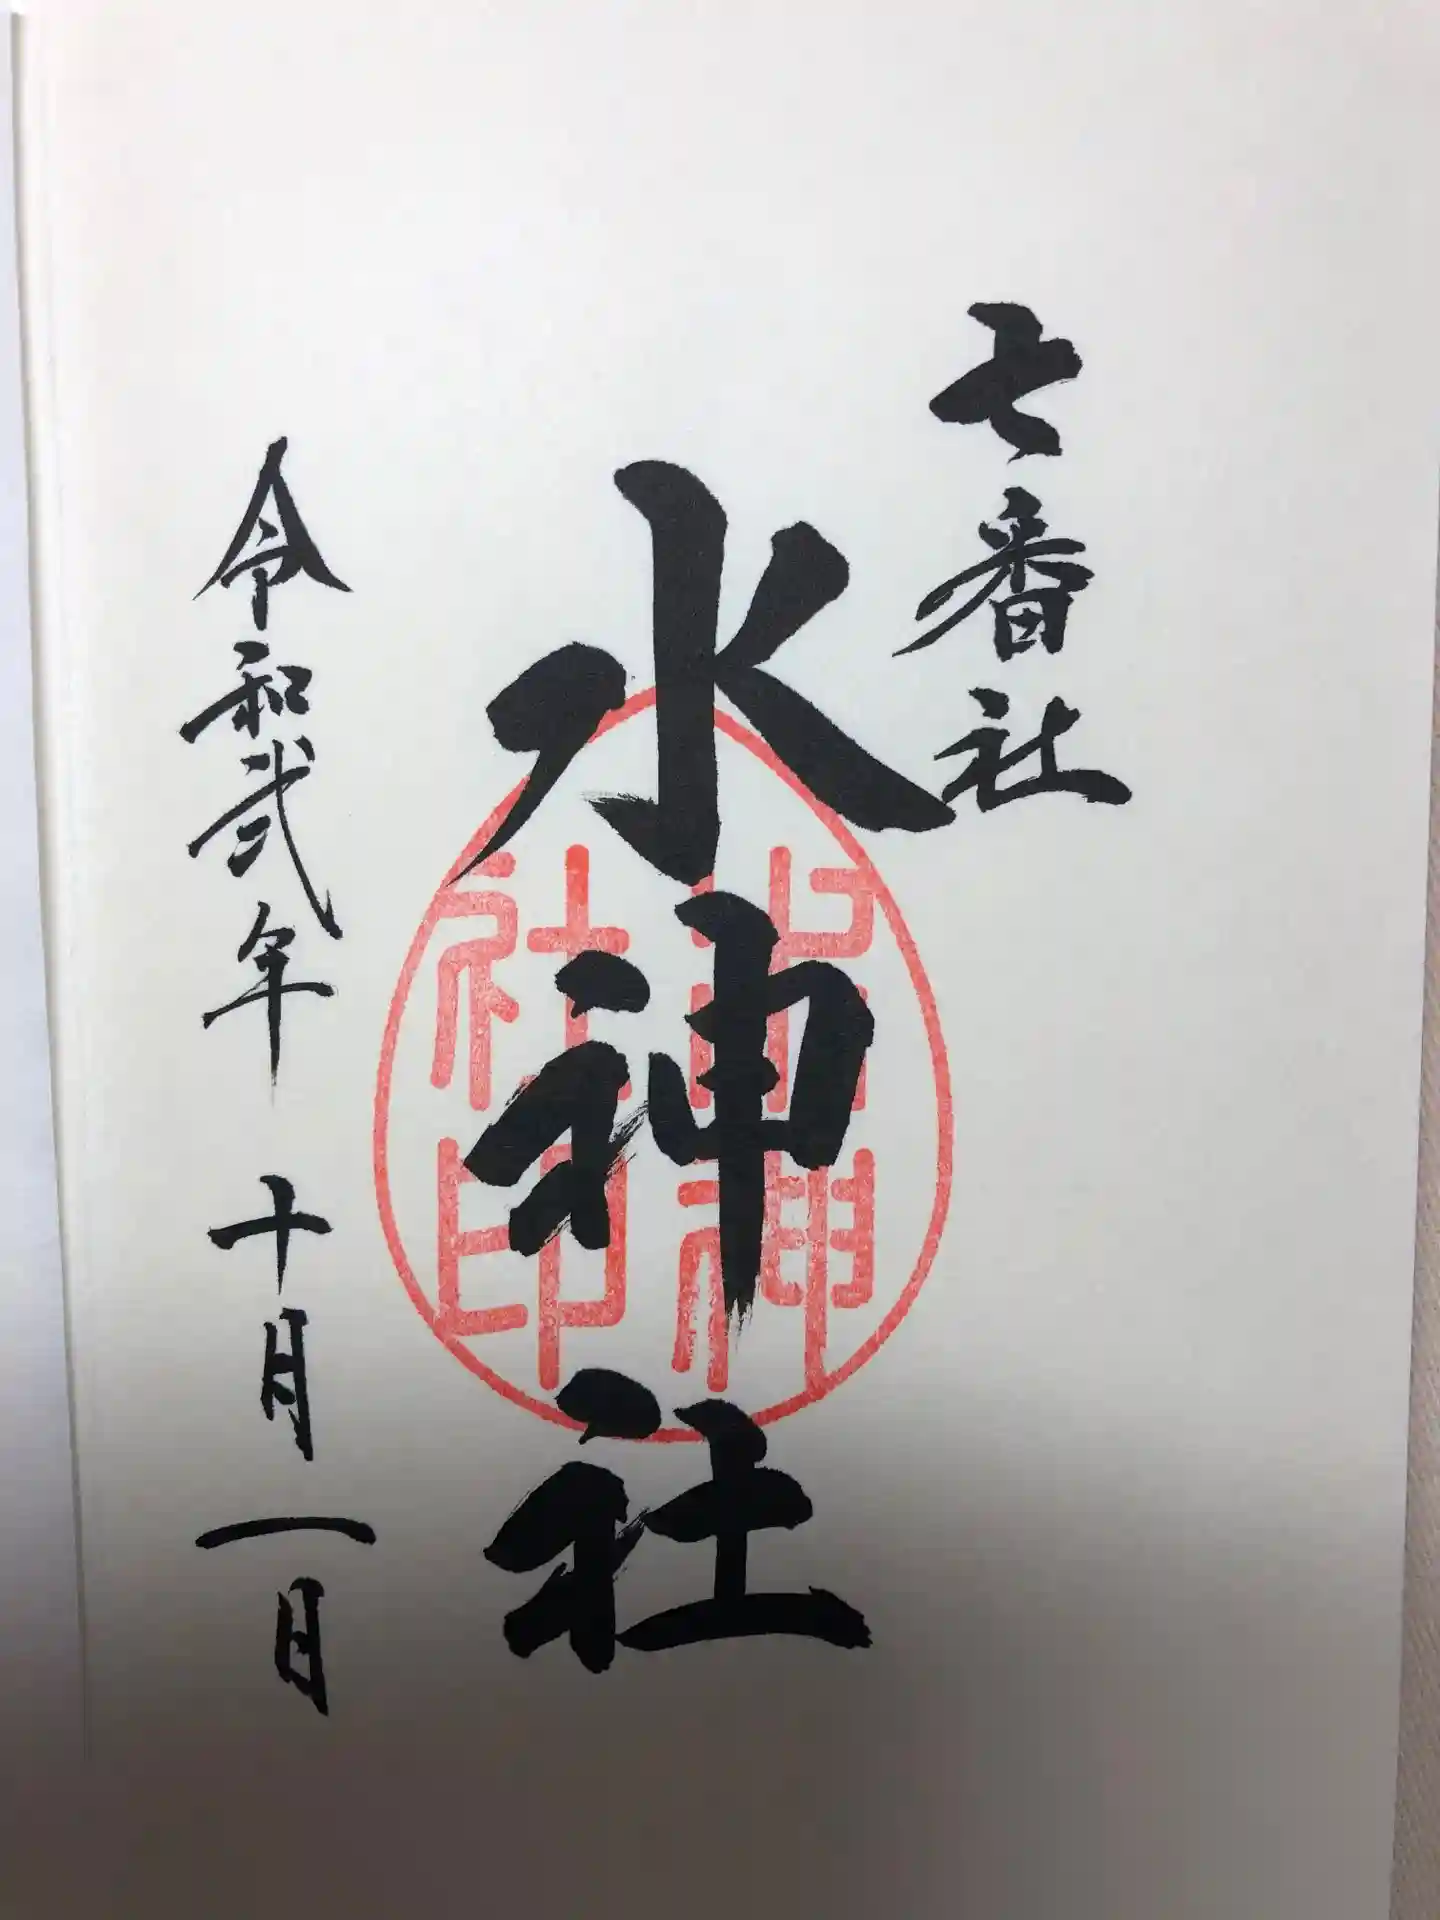 七番社
水神社
令和弐年 十月一日
神
社印